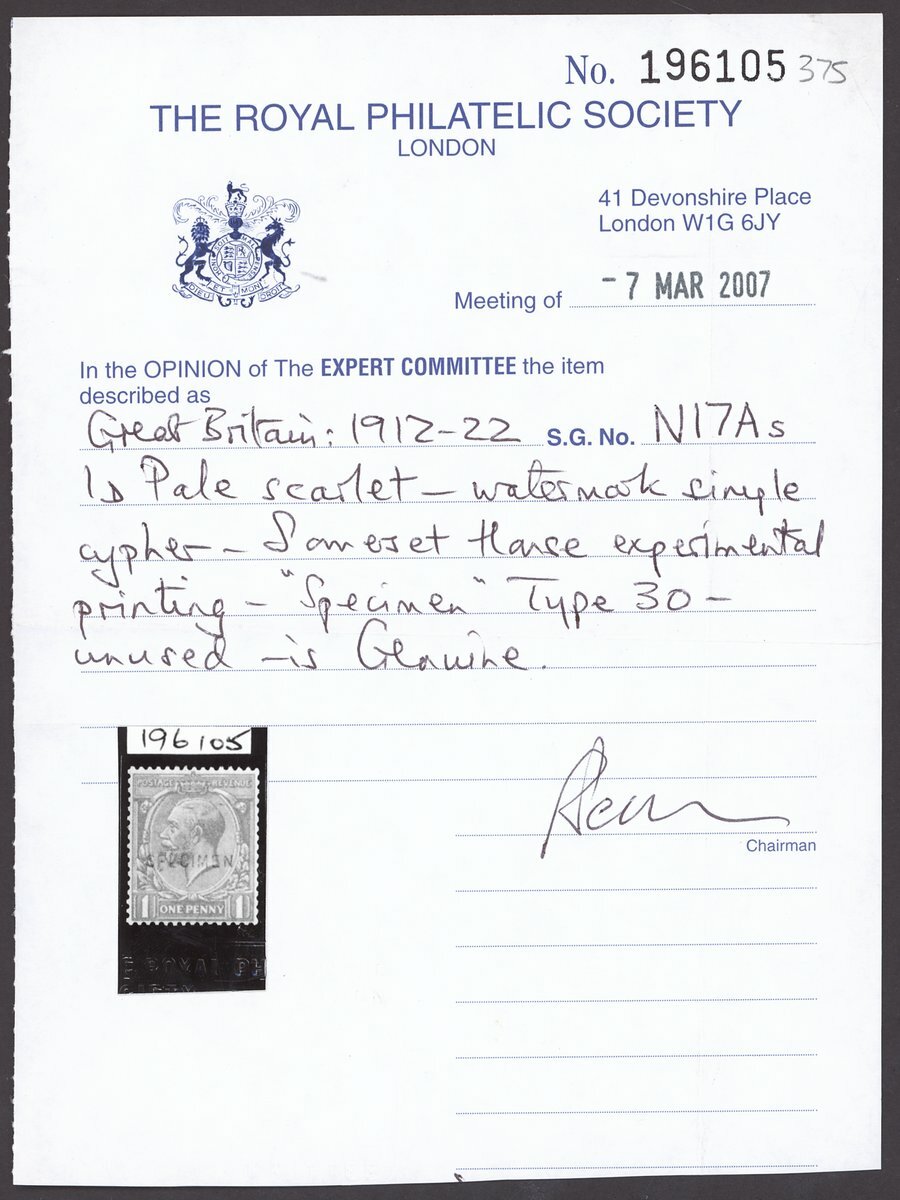 No. 196105 375
THE ROYAL PHILATELIC SOCIETY
LONDON
41 Devonshire Place
London W1G 6JY
DIEU ET MON DROIT
Meeting of - 7 MAR 2007
In the OPINION of The EXPERT COMMITTEE the item
described as
Great Britain: 1912-22 S.G. No. N17As
1D Pale scarlet - watermark simple
cypher - Somerset House experimental
printing - "Specimen" Type 30 -
unused - is Genuine.
196105
POSTAGE REVENUE
SPECIMEN
1 ONE PENNY 1
E ROYAL PH
Chairman